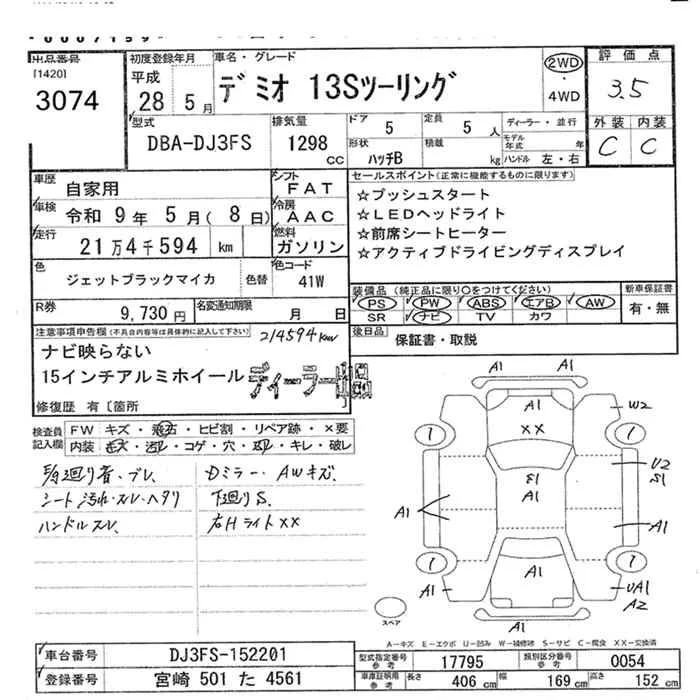 出品番号
[1420]
3074
初度登録年月
平成
28 5月
車名・グレード
デミオ 13Sツーリング
2WD
・
4WD
評価点
3.5
外装 内装
C C
型式
DBA-DJ3FS
排気量
1298
CC
ドア 5
定員 5 人
形状 ハッチB
積載 kg
ディーラー・並行
モデル年式 年
ハンドル 左・右
車歴 自家用
車検 令和 9年 5月(8日)
走行 21万4千594 km
シフト FAT
冷房 AAC
燃料 ガソリン
セールスポイント(正常に機能するものに限ります)
☆プッシュスタート
☆LEDヘッドライト
☆前席シートヒーター
☆アクティブドライビングディスプレイ
色 ジェットブラックマイカ 色替
色コード 41W
装備品(純正品に限り○をつけてください)
PS PW ABS エアB AW
SR ナビ TV カワ
新車保証書
有・無
R券 9,730円
名変通知期限 月 日
後日品 保証書・取説
注意事項申告欄(不具合内容等は具体的に記入して下さい)
214594km
ナビ映らない
15インチアルミホイール
修復歴 有〔箇所
検査員記入欄
FW キズ・飛石・ヒビ割・リペア跡・×要
内装 キズ・汚れ・コゲ・穴・スレ・キレ・破レ
シート汚れ・スレ・ヘタリ
ハンドルスレ
Dミラー・AWキズ
下廻りS
右Hライト××
A1 A1
A1
XX
W2
1 1
E1
A1
U2
S1
A1 A1
1 1
A1
A1
UA1
A2
A1
スペア
A−キズ E−エクボ U−凹み W−補修跡 S−サビ C−腐食 XX−交換済
車台番号 DJ3FS-152201
登録番号 宮崎 501 た 4561
型式指定番号 参考 17795
類別区分番号 参考 0054
車庫証明用 参考
長さ 406 cm
幅 169 cm
高さ 152 cm